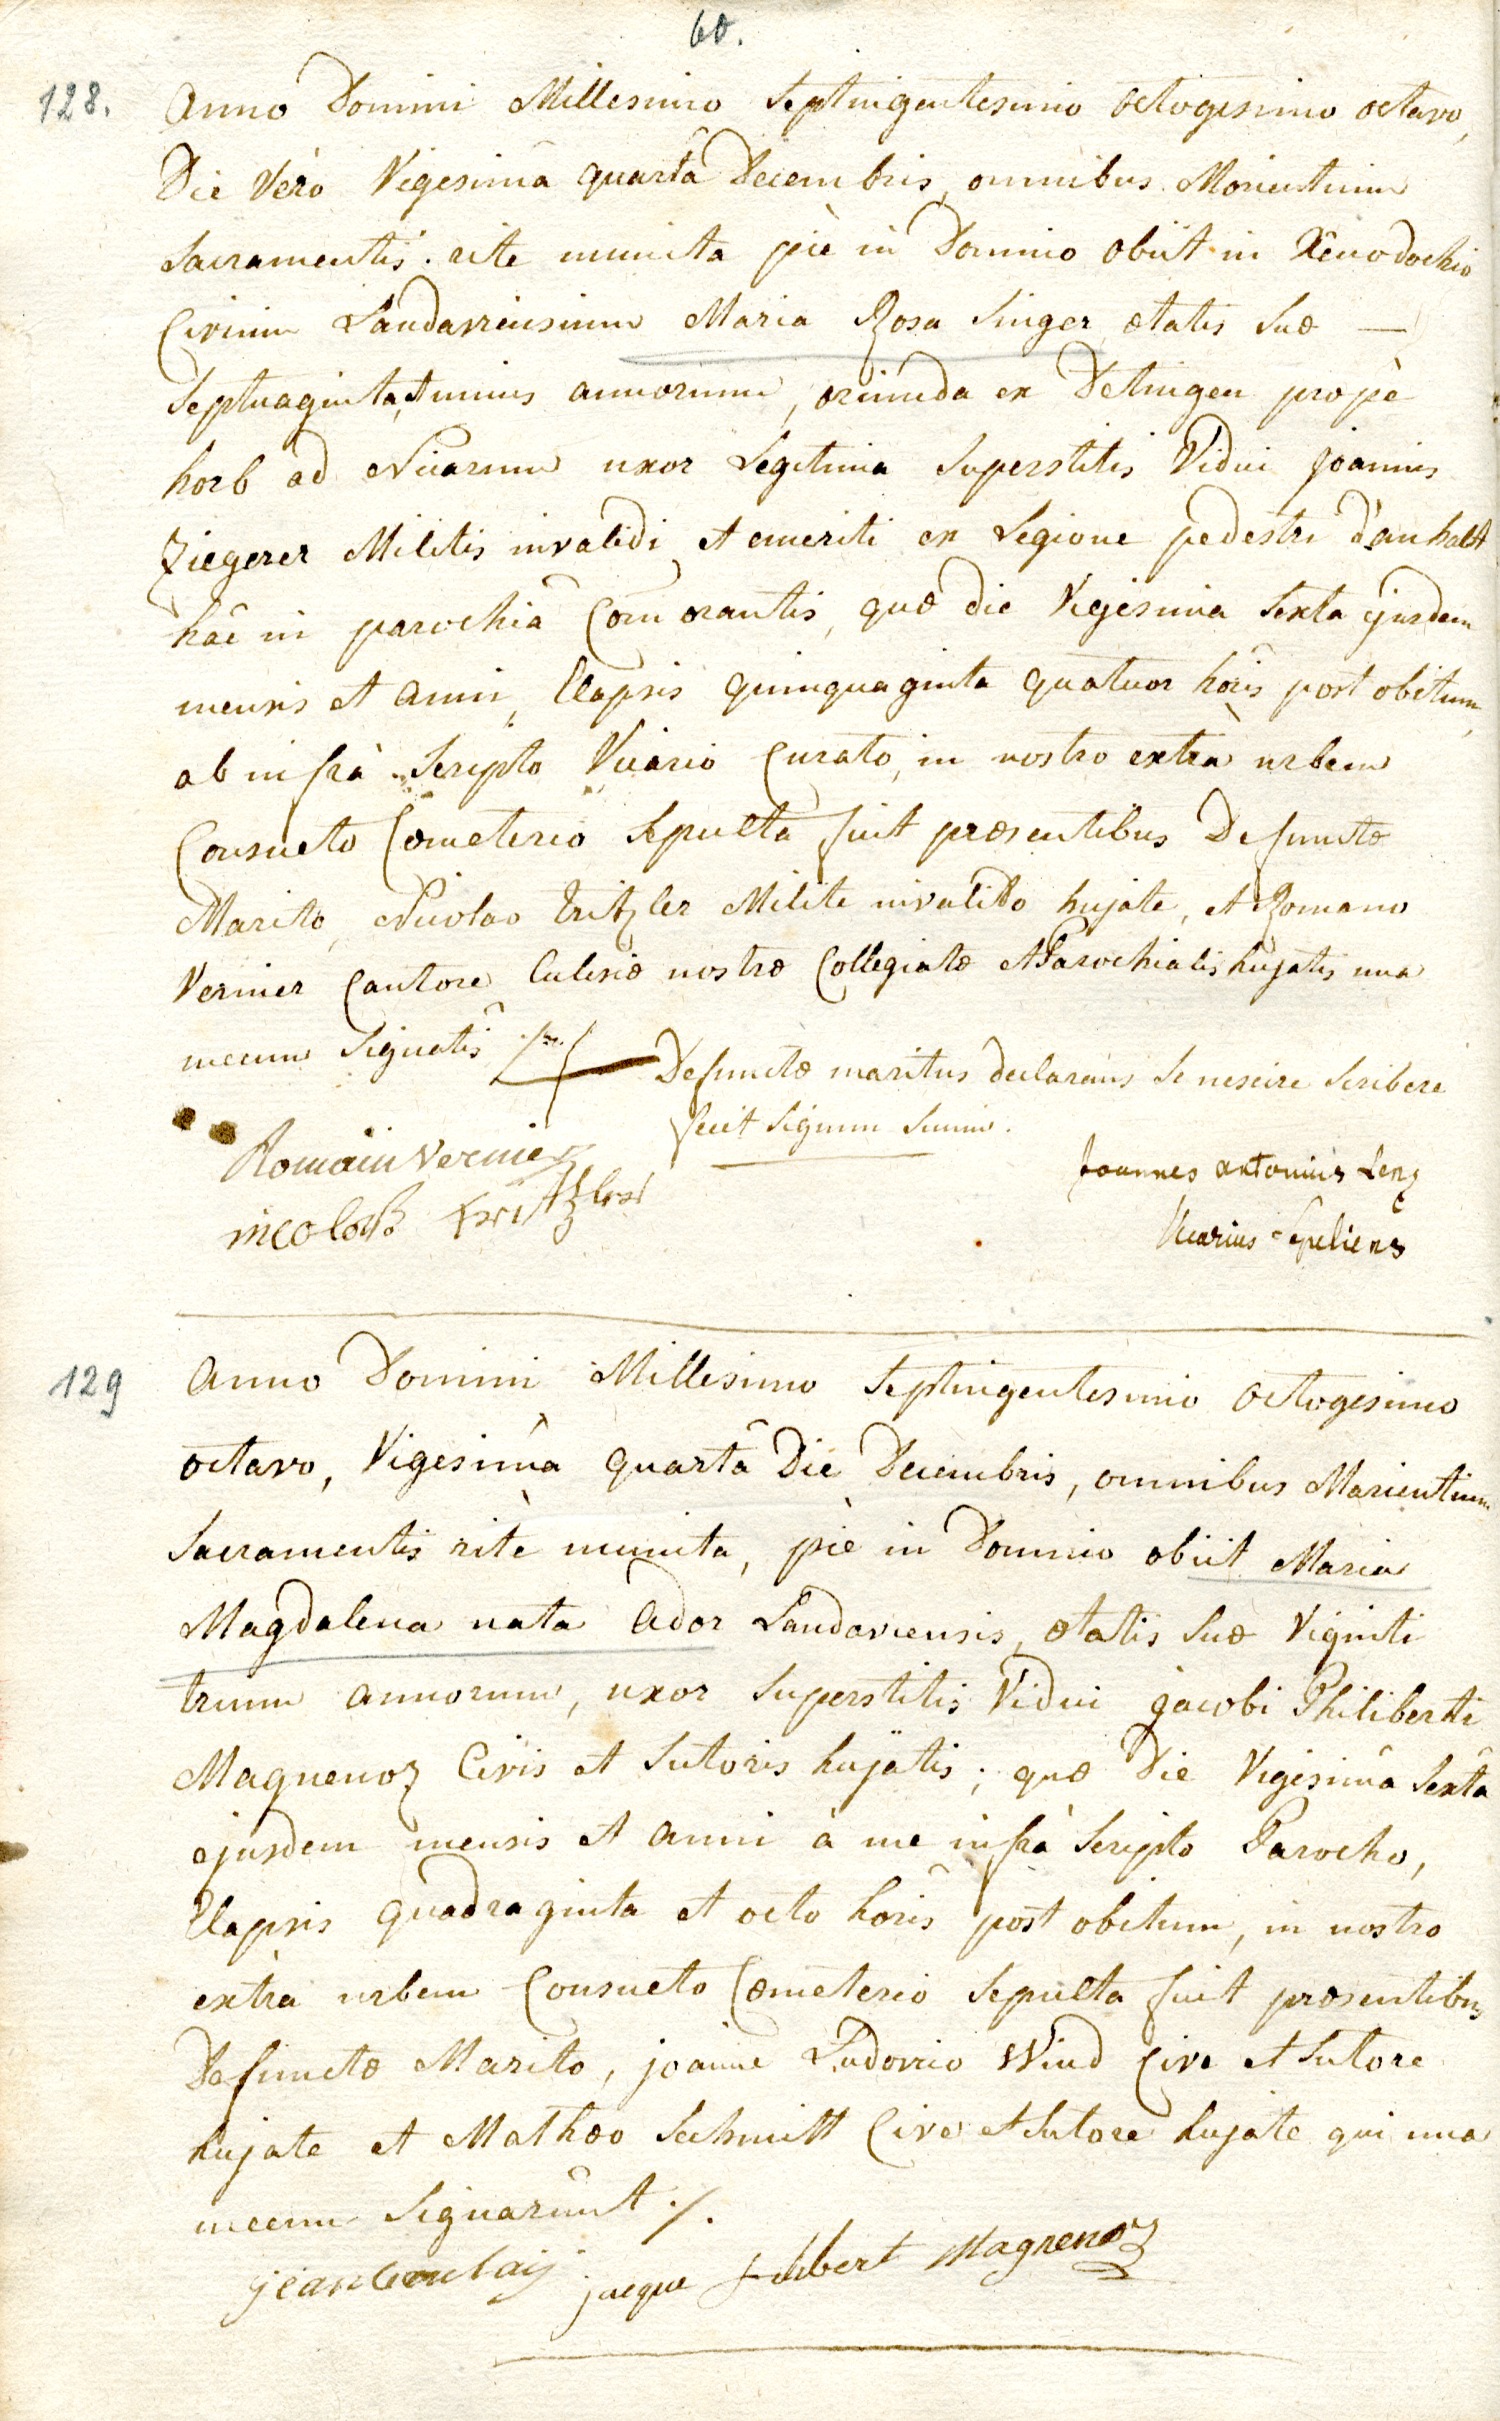 60.
128. Anno Domini Millesimo Septingentesimo octogesimo octavo,
Die Verò Vigesimâ quartâ Decembris, omnibus Morientium
Sacramentis rite munita piè in Domino obiit in Xenodochio
Civium Landaviensium Maria Rosa Singer ætatis suæ —
Septuaginta, et unius annorum, oriunda ex Detingen propè
horb ad Nicarum uxor Legitima Superstitis Vidui Joannis
Ziegerer Militis invalidi et emeriti ex Legione pedestri d'anhalt
hâc in parochiâ Comorantis, quæ die Vigesima Sexta ejusdem
mensis et anni, Elapsis quinquaginta quatuor horis post obitum,
ab infrà Scripto Vicario Curato, in nostro extrà urbem
Consueto Cœmeterio Sepulta fuit præsentibus Defunctæ
Marito, Nicolao Kritzler Milite invalido hujate, et Romano
Vernier Cantore Eclesiæ nostræ Collegiatæ et Parochialis hujatis una
mecum Signatis ./.
Defunctæ maritus declarans Se nescire Scribere
fecit Signum Suum.
Romain vernier
nicolaß kritzler
Joannes antonius Lenz
Vicarius Sepeliens
129 Anno Domini Millesimo Septingentesimo octogesimo
octavo, Vigesimâ quartâ Die Decembris, omnibus Morientium
Sacramentis ritè munita, piè in Domino obiit Maria
Magdalena nata Ador Landaviensis, ætatis Suæ Viginti
trium annorum, uxor Superstitis Vidui jacobi Philiberti
Magnenoz Civis et Sutoris hujatis; quæ Die Vigesimâ Sextâ
ejusdem mensis et anni à me infrà Scripto Parocho,
Elapsis quadraginta et octo horis post obitum, in nostro
extrà urbem Consueto Cœmeterio Sepulta fuit præsentibus
Defunctæ Marito, joanne Ludovico Wind Cive et Sutore
hujate et Mathæo Schmitt Cive et Sutore hujate qui una
mecum Signarunt ./.
jacque filibert Magnenoz